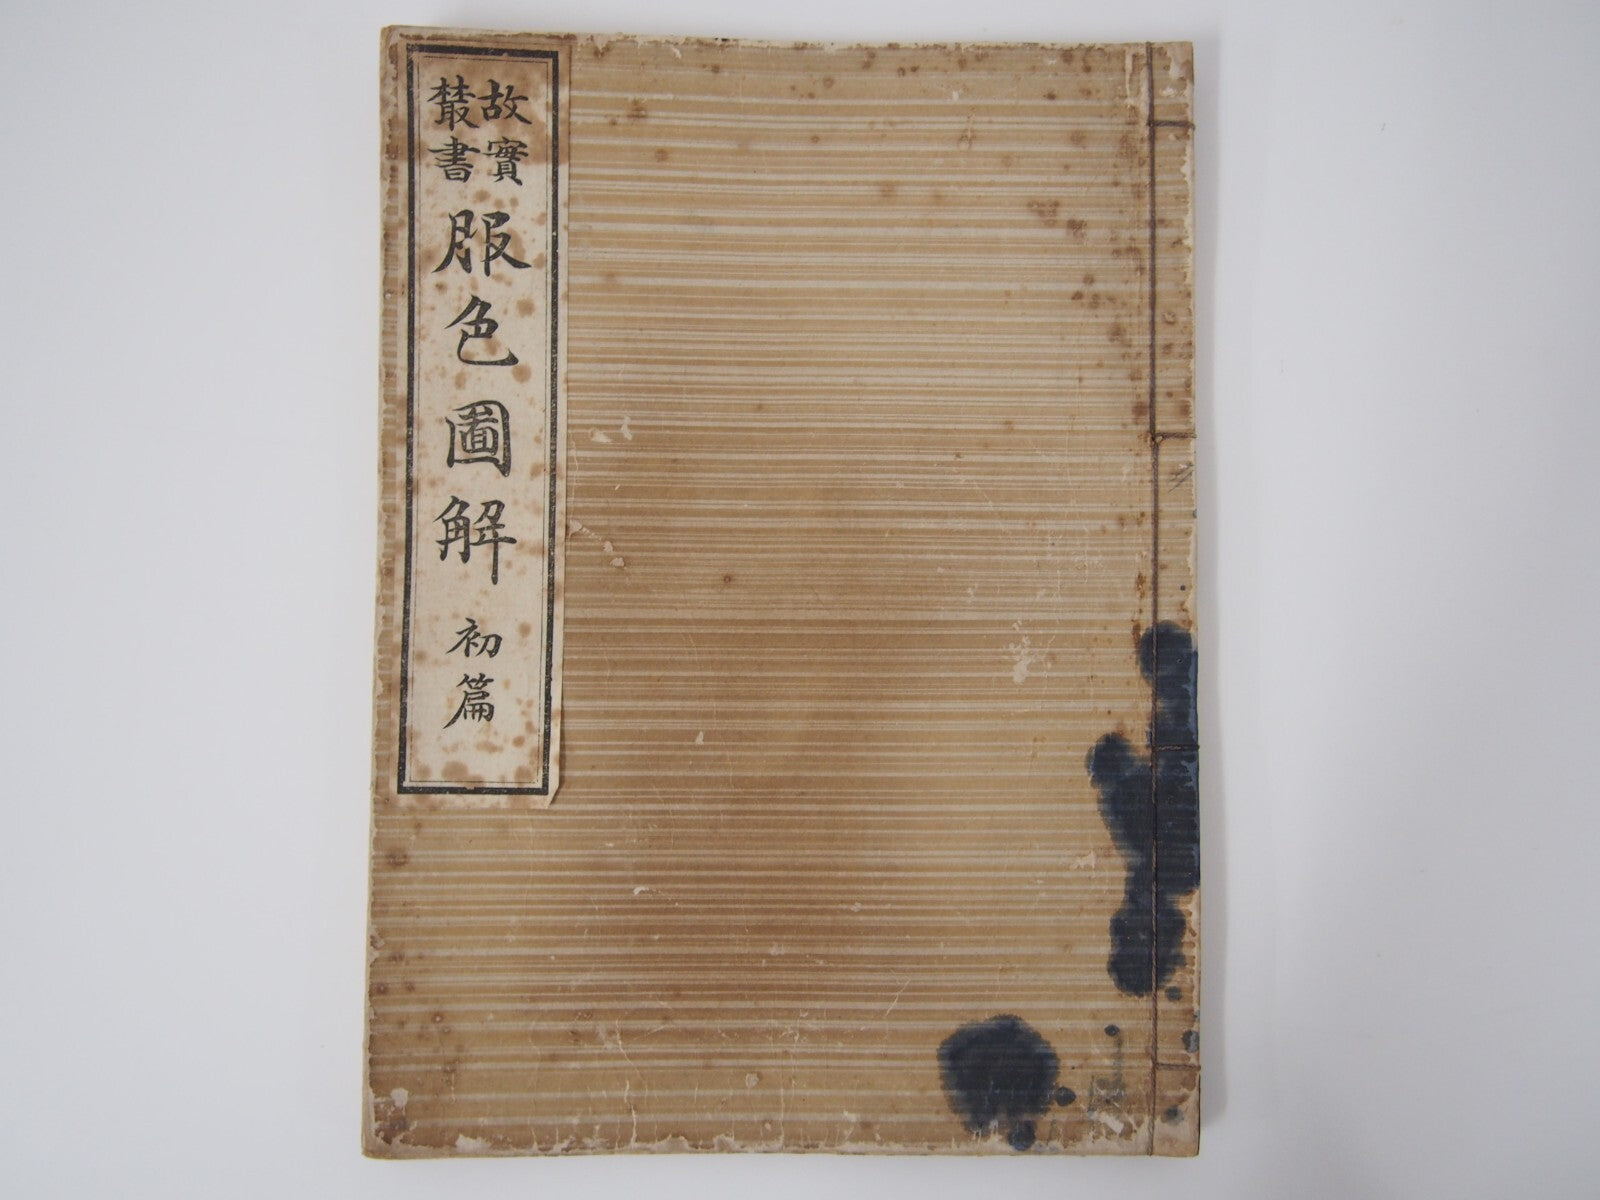 故實
叢書
服色圖解
初篇